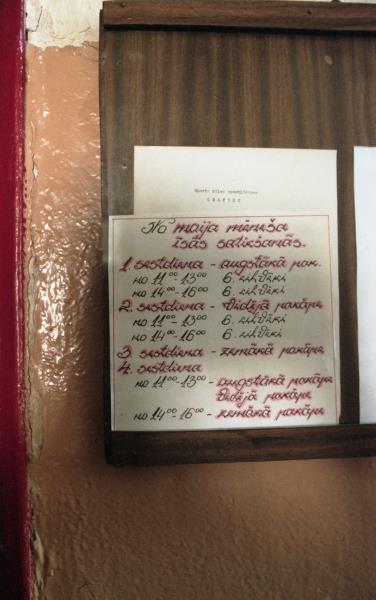 GRAFIKS
No maija mēneša
īsās satikšanās.
1. sestdiena - augstākā pak.
no 11⁰⁰ - 13⁰⁰ 6. cilvēki
no 14⁰⁰ - 16⁰⁰ 6. cilvēki
2. sestdiena - vidējā pakāpe
no 11⁰⁰ - 13⁰⁰ 6. cilvēki
no 14⁰⁰ - 16⁰⁰ 6. cilvēki
3. sestdiena - zemākā pakāpe
4. sestdiena
no 11⁰⁰ - 13⁰⁰ - augstākā pakāpe
vidējā pakāpe
no 14⁰⁰ - 16⁰⁰ - zemākā pakāpe